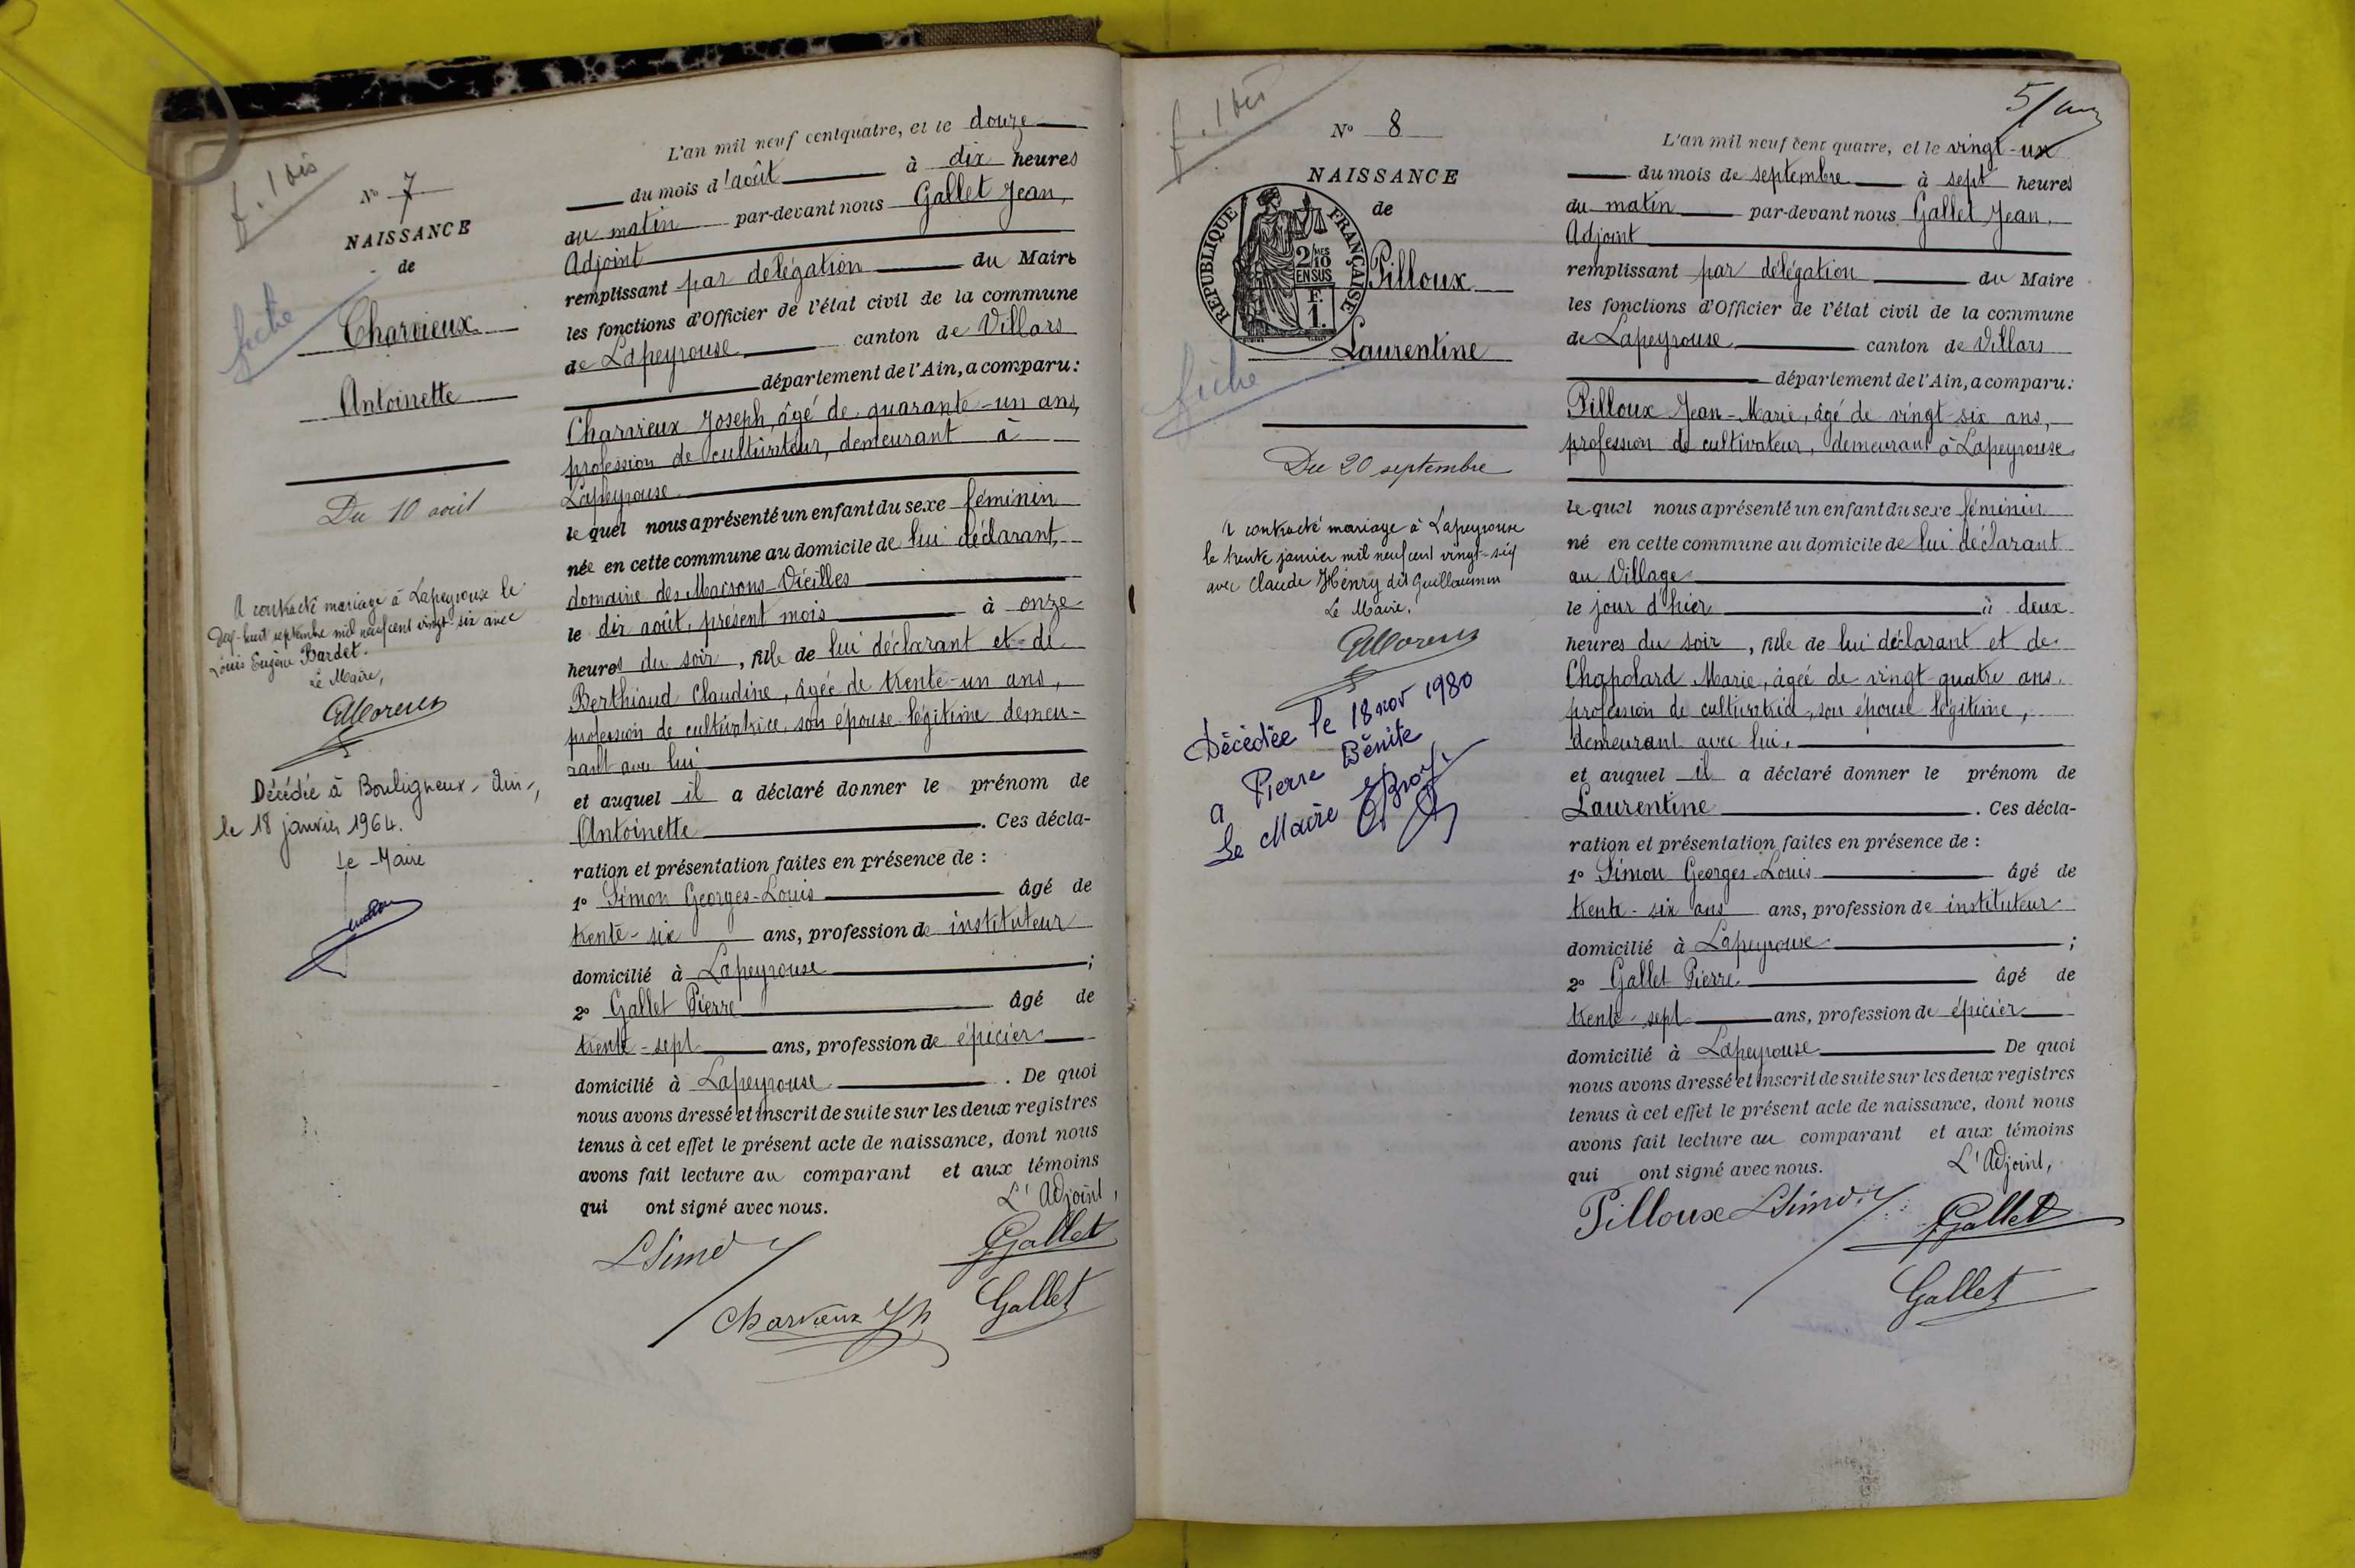 f. 1 bis
N° 7
NAISSANCE
de
fiche
Charvieux
Antoinette
Du 10 août
A contracté mariage à Lapeyrouse le
dix-huit septembre mil neuf cent vingt-six avec
Louis Eugène Bardet.
Le Maire,
Décédée à Bouligneux - Ain -,
le 18 janvier 1964.
Le Maire
L'an mil neuf cent quatre, et le douze
du mois d'août à dix heures
du matin par-devant nous Gallet Jean,
Adjoint
remplissant par délégation du Maire
les fonctions d'Officier de l'état civil de la commune
de Lapeyrouse canton de Villars
département de l'Ain, a comparu :
Charvieux Joseph, âgé de quarante-un ans,
profession de cultivateur, demeurant à
Lapeyrouse
lequel nous a présenté un enfant du sexe féminin
née en cette commune au domicile de lui déclarant,
domaine des Maisons Vieilles
le dix août, présent mois à onze
heures du soir, fille de lui déclarant et de
Berthiaud Claudine, âgée de trente-un ans,
profession de cultivatrice, son épouse légitime demeu-
rant avec lui
et auquel il a déclaré donner le prénom de
Antoinette. Ces décla-
ration et présentation faites en présence de :
1° Simon Georges-Louis âgé de
trente-six ans, profession de instituteur
domicilié à Lapeyrouse ;
2° Gallet Pierre âgé de
trente-sept ans, profession de épicier
domicilié à Lapeyrouse. De quoi
nous avons dressé et inscrit de suite sur les deux registres
tenus à cet effet le présent acte de naissance, dont nous
avons fait lecture au comparant et aux témoins
qui ont signé avec nous. L'Adjoint,
LSimon Gallet
Charvieux Jh Gallet
f. 1 bis
5/
N° 8
NAISSANCE
de
RÉPUBLIQUE FRANÇAISE
2/10 MES
EN SUS
F.
1.
Pilloux
Laurentine
fiche
Du 20 septembre
A contracté mariage à Lapeyrouse
le trente janvier mil neuf cent vingt-six
avec Claude Henry dit Guillaumin
Le Maire,
Décédée le 18 nov 1980
a Pierre Bénite
Le Maire
L'an mil neuf cent quatre, et le vingt-un
du mois de septembre à sept heures
du matin par-devant nous Gallet Jean,
Adjoint
remplissant par délégation du Maire
les fonctions d'Officier de l'état civil de la commune
de Lapeyrouse canton de Villars
département de l'Ain, a comparu :
Pilloux Jean-Marie, âgé de vingt-six ans,
profession de cultivateur, demeurant à Lapeyrouse
lequel nous a présenté un enfant du sexe féminin
né en cette commune au domicile de lui déclarant
au Village
le jour d'hier à deux
heures du soir, fille de lui déclarant et de
Chapolard Marie, âgée de vingt-quatre ans,
profession de cultivatrice, son épouse légitime,
demeurant avec lui,
et auquel il a déclaré donner le prénom de
Laurentine. Ces décla-
ration et présentation faites en présence de :
1° Simon Georges-Louis âgé de
trente-six ans ans, profession de instituteur
domicilié à Lapeyrouse ;
2° Gallet Pierre âgé de
trente-sept ans, profession de épicier
domicilié à Lapeyrouse De quoi
nous avons dressé et inscrit de suite sur les deux registres
tenus à cet effet le présent acte de naissance, dont nous
avons fait lecture au comparant et aux témoins
qui ont signé avec nous. L'Adjoint,
Pilloux LSimon Gallet
Gallet